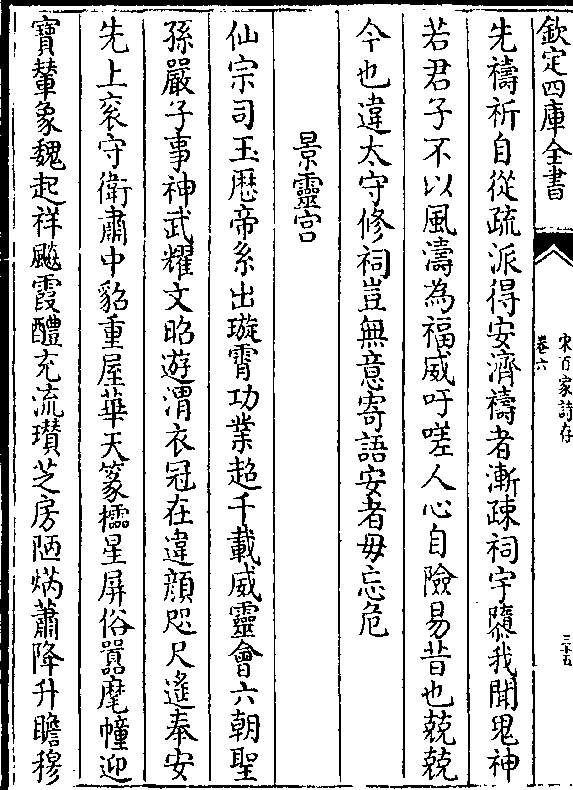 欽定四庫全書
宋百家詩存
卷六
三十五
先禱祈自從疏派得安濟禱者漸疎祠宇隳我聞鬼神
若君子不以風濤為福威吁嗟人心自險易昔也兢兢
今也違太守修祠豈無意寄語安者毋忘危
景靈宫
仙宗司玉厯帝系出璇霄功業超千載威靈會六朝聖
孫嚴子事神武耀文昭遊渭衣冠在違顔咫尺遙奉安
先上衮守衛肅中貂重屋華天篆櫺星屏俗囂麾幢迎
寶輦象魏起祥飈霞醴充流瓚芝房陋焫蕭降升瞻穆